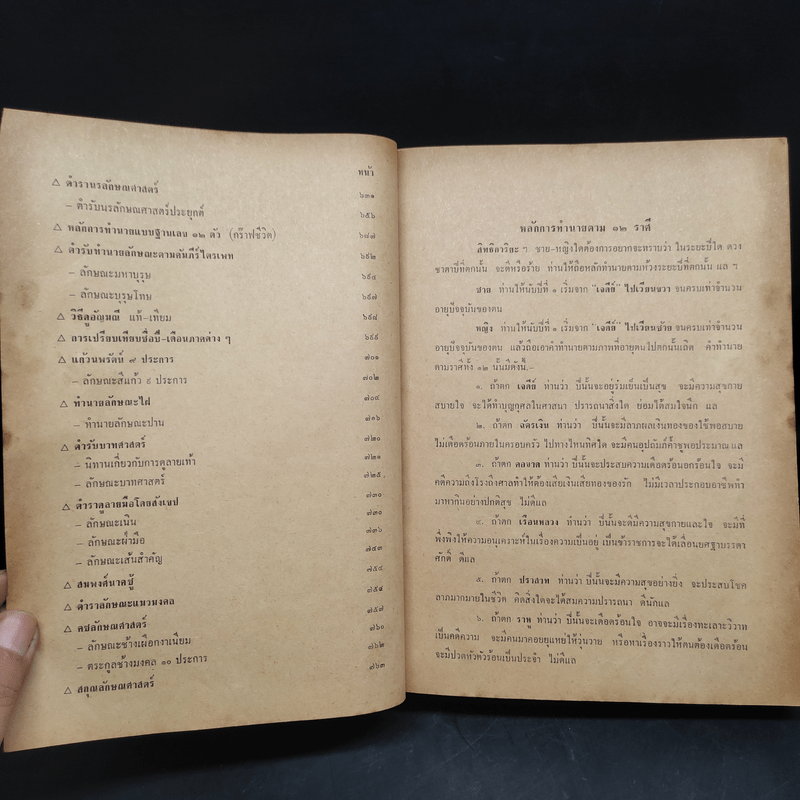 หน้า
△ ตำรานรลักษณศาสตร์ ๖๓๑
– ตำรับนรลักษณศาสตร์ประยุกต์ ๖๕๖
△ หลักการทำนายแบบฐานเลข ๑๒ ตัว (กร๊าฟชีวิต) ๖๘๗
△ ตำรับทำนายลักษณะตามคัมภีร์ไตรเพท ๖๙๒
– ลักษณะมหาบุรุษ ๖๙๔
– ลักษณะบุรุษโทษ ๖๙๗
△ วิธีดูอัญมณี แท้-เทียม ๖๙๘
△ การเปรียบเทียบชื่อปี-เดือนภาคต่าง ๆ ๖๙๙
△ แก้วนพรัตน์ ๙ ประการ ๗๐๑
– ลักษณะสีแก้ว ๙ ประการ ๗๐๒
△ ทำนายลักษณะไฝ ๗๐๔
– ทำนายลักษณะปาน ๗๑๖
△ ตำรับบาทศาสตร์ ๗๒๐
– นิทานเกี่ยวกับการดูลายเท้า ๗๒๑
– ลักษณะบาทศาสตร์ ๗๒๕
△ ตำราดูลายมือโดยสังเขป ๗๓๐
– ลักษณะเนิน ๗๓๐
– ลักษณะฝ่ามือ ๗๓๖
– ลักษณะเส้นสำคัญ ๗๔๓
△ สมพงศ์นาคชู้ ๗๕๔
△ ตำราลักษณะแมวมงคล ๗๕๔
△ คชลักษณศาสตร์ ๗๕๗
– ลักษณะช้างเผือกงาเนียม ๗๖๐
– ตระกูลช้างมงคล ๑๐ ประการ ๗๖๒
△ สกุณลักษณศาสตร์ ๗๖๓
หลักการทำนายตาม ๑๒ ราศี
สิทธิการิยะ ฯ ชาย-หญิงใดต้องการอยากจะทราบว่า ในระยะปีใด ดวง
ชาตาปีที่ตกนั้น จะดีหรือร้าย ท่านให้ถือหลักทำนายตามห้วงระยะปีที่ตกนั้น แล ฯ
ชาย ท่านให้นับปีที่ ๑ เริ่มจาก "เจดีย์" ไปเวียนขวา จนครบเท่าจำนวน
อายุปัจจุบันของตน
หญิง ท่านให้นับปีที่ ๑ เริ่มจาก "เจดีย์" ไปเวียนซ้าย จนครบเท่าจำนวน
อายุปัจจุบันของตน แล้วถือเอาคำทำนายตามภาพที่อายุตนไปตกนั้นเถิด คำทำนาย
ตามราศีทั้ง ๑๒ นั้นมีดังนี้.-
๑. ถ้าตก เจดีย์ ท่านว่า ปีนั้นจะอยู่ร่มเย็นเป็นสุข จะมีความสุขกาย
สบายใจ จะได้ทำบุญกุศลในศาสนา ปรารถนาสิ่งใด ย่อมได้สมใจนึก แล
๒. ถ้าตก ฉัตรเงิน ท่านว่า ปีนั้นจะมีลาภผลเงินทองของใช้พอสบาย
ไม่เดือดร้อนภายในครอบครัว ไปทางไหนทิศใด จะมีคนอุปถัมภ์ค้ำชูพอประมาณ แล
๓. ถ้าตก คอขาด ท่านว่า ปีนั้นจะประสบความเดือดร้อนอกร้อนใจ จะมี
คดีความถึงโรงถึงศาลทำให้ต้องเสียเงินเสียทองของรัก ไม่มีเวลาประกอบอาชีพทำ
มาหากินอย่างปกติสุข ไม่ดีแล
๔. ถ้าตก เรือนหลวง ท่านว่า ปีนั้นจะดีมีความสุขกายและใจ จะมีที่
พึ่งพิงให้ความอนุเคราะห์ในเรื่องความเป็นอยู่ เป็นข้าราชการจะได้เลื่อนยศฐาบรรดา
ศักดิ์ ดีแล
๕. ถ้าตก ปราสาท ท่านว่า ปีนั้นจะมีความสุขอย่างยิ่ง จะประสบโชค
ลาภมากมายในชีวิต คิดสิ่งใดจะได้สมความปรารถนา ดีนักแล
๖. ถ้าตก ราหู ท่านว่า ปีนั้นจะเดือดร้อนใจ อาจจะมีเรื่องทะเลาะวิวาท
เป็นคดีความ จะมีคนมาคอยยุแหย่ให้วุ่นวาย หรือหาเรื่องราวให้ตนต้องเดือดร้อน
จะมีปวดหัวตัวร้อนเป็นประจำ ไม่ดีแล